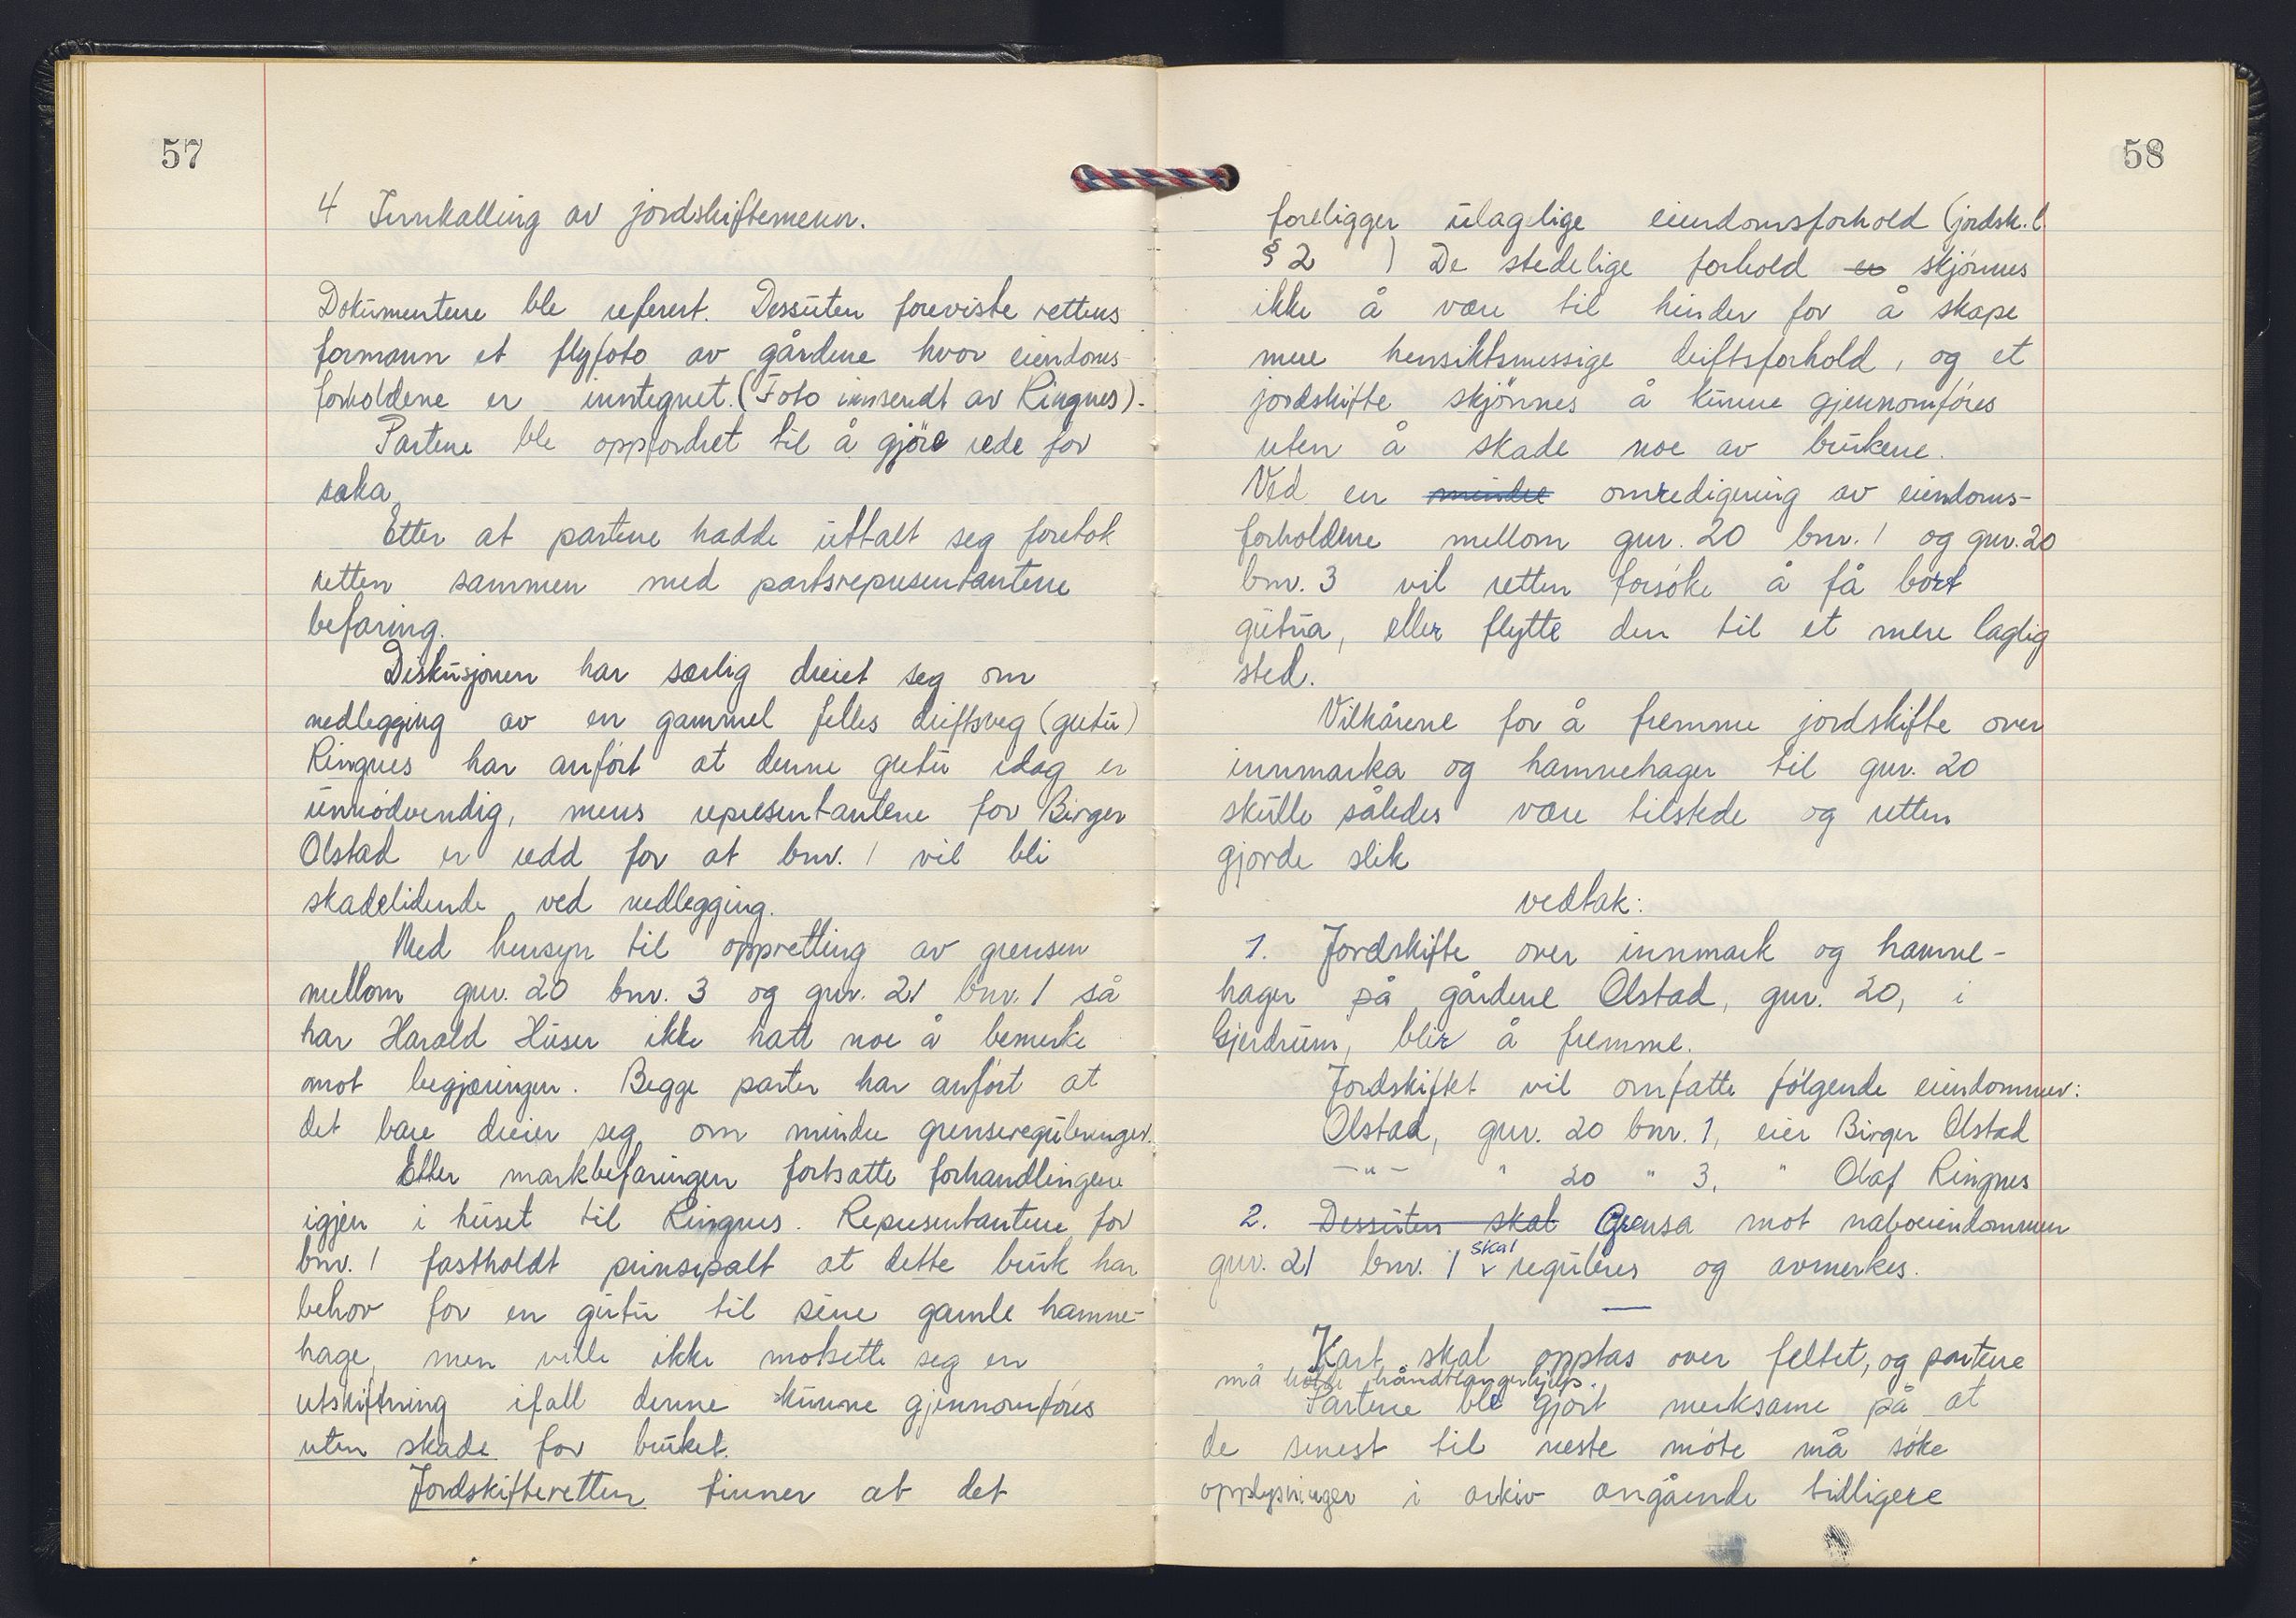 57
4 Innkalling av jordskiftemenn.
Dokumentene ble referert. Dessuten foreviste rettens
formann et flyfoto av gårdene hvor eiendoms-
forholdene er inntegnet. (Foto innsendt av Ringnes).
Partene ble oppfordret til å gjöre rede for
saka.
Etter at partene hadde uttalt seg foretok
retten sammen med partsrepresentantene
befaring.
Diskusjonen har særlig dreiet seg om
nedlegging av en gammel felles driftsveg (gutu)
Ringnes har anfört at denne gutu idag er
unnödvendig, mens representantene for Birger
Olstad er redd for at bnr. 1 vil bli
skadelidende ved nedlegging.
Med hensyn til oppretting av grensen
mellom gnr. 20 bnr. 3 og gnr. 21 bnr. 1 så
har Harald Huser ikke hatt noe å bemerke
mot begjæringen. Begge parter har anfört at
det bare dreier seg om mindre grensereguleringer.
Etter markbefaringen fortsatte forhandlingene
igjen i huset til Ringnes. Representantene for
bnr. 1 fastholdt prinsipalt at dette bruk har
behov for en gutu til sine gamle hamne-
hage, men ville ikke motsette seg en
utskiftning ifall denne kunne gjennomföres
uten skade for bruket.
Jordskifteretten finner at det
58
foreligger ulagelige eiendomsforhold (jordsk. l.
§ 2 ) De stedelige forhold er skjönnes
ikke å være til hinder for å skape
mere hensiktsmessige driftsforhold, og et
jordskifte skjönnes å kunne gjennomföres
uten å skade noe av brukene.
Ved en mindre omredigering av eiendoms-
forholdene mellom gnr. 20 bnr. 1 og gnr. 20
bnr. 3 vil retten forsöke å få bort
gutua, eller flytte den til et mere laglig
sted.
Vilkårene for å fremme jordskifte over
innmarka og hamnehager til gnr. 20
skulle således være tilstede og retten
gjorde slik
vedtak:
1. Jordskifte over innmark og hamne-
hager på gårdene Olstad, gnr. 20, i
Gjerdrum, blir å fremme.
Jordskiftet vil omfatte fölgende eiendommer:
Olstad, gnr. 20 bnr. 1, eier Birger Olstad
-"- " 20 " 3, " Olaf Ringnes
2. Dessuten skal Grensa mot naboeiendommen
gnr. 21 bnr. 1 skal reguleres og avmerkes.
Kart skal opptas over feltet, og partene
må holde håndtlangerhjelp.
Partene ble gjort merksame på at
de senest til neste möte må söke
opplysninger i arkiv angående tidligere